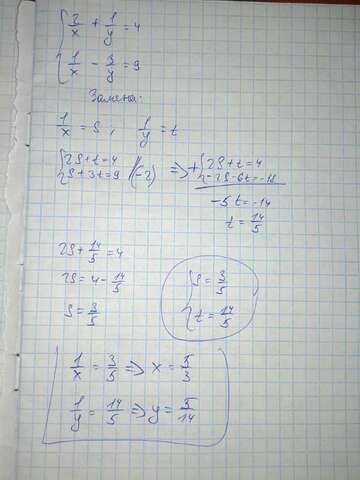 { 2/x + 1/y = 4
1/x - 3/y = 9
Замена:
1/x = s ; 1/y = t
{ 2s+t=4 => + { 2s+t=4
s+3t=9 |(-2) -2s-6t=-18
-5t=-14
t = 14/5
2s + 14/5 = 4
2s = 4 - 14/5
s = 3/5
{ s = 3/5
t = 14/5
1/x = 3/5 => x = 5/3
1/y = 14/5 => y = 5/14